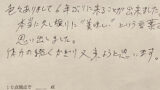 色々ありまして6年ぶりに来ることが出来ました
本当に久し振りに"美味しい"という言葉を
思い出しました。
体力の続くかぎり又来ようと思います。